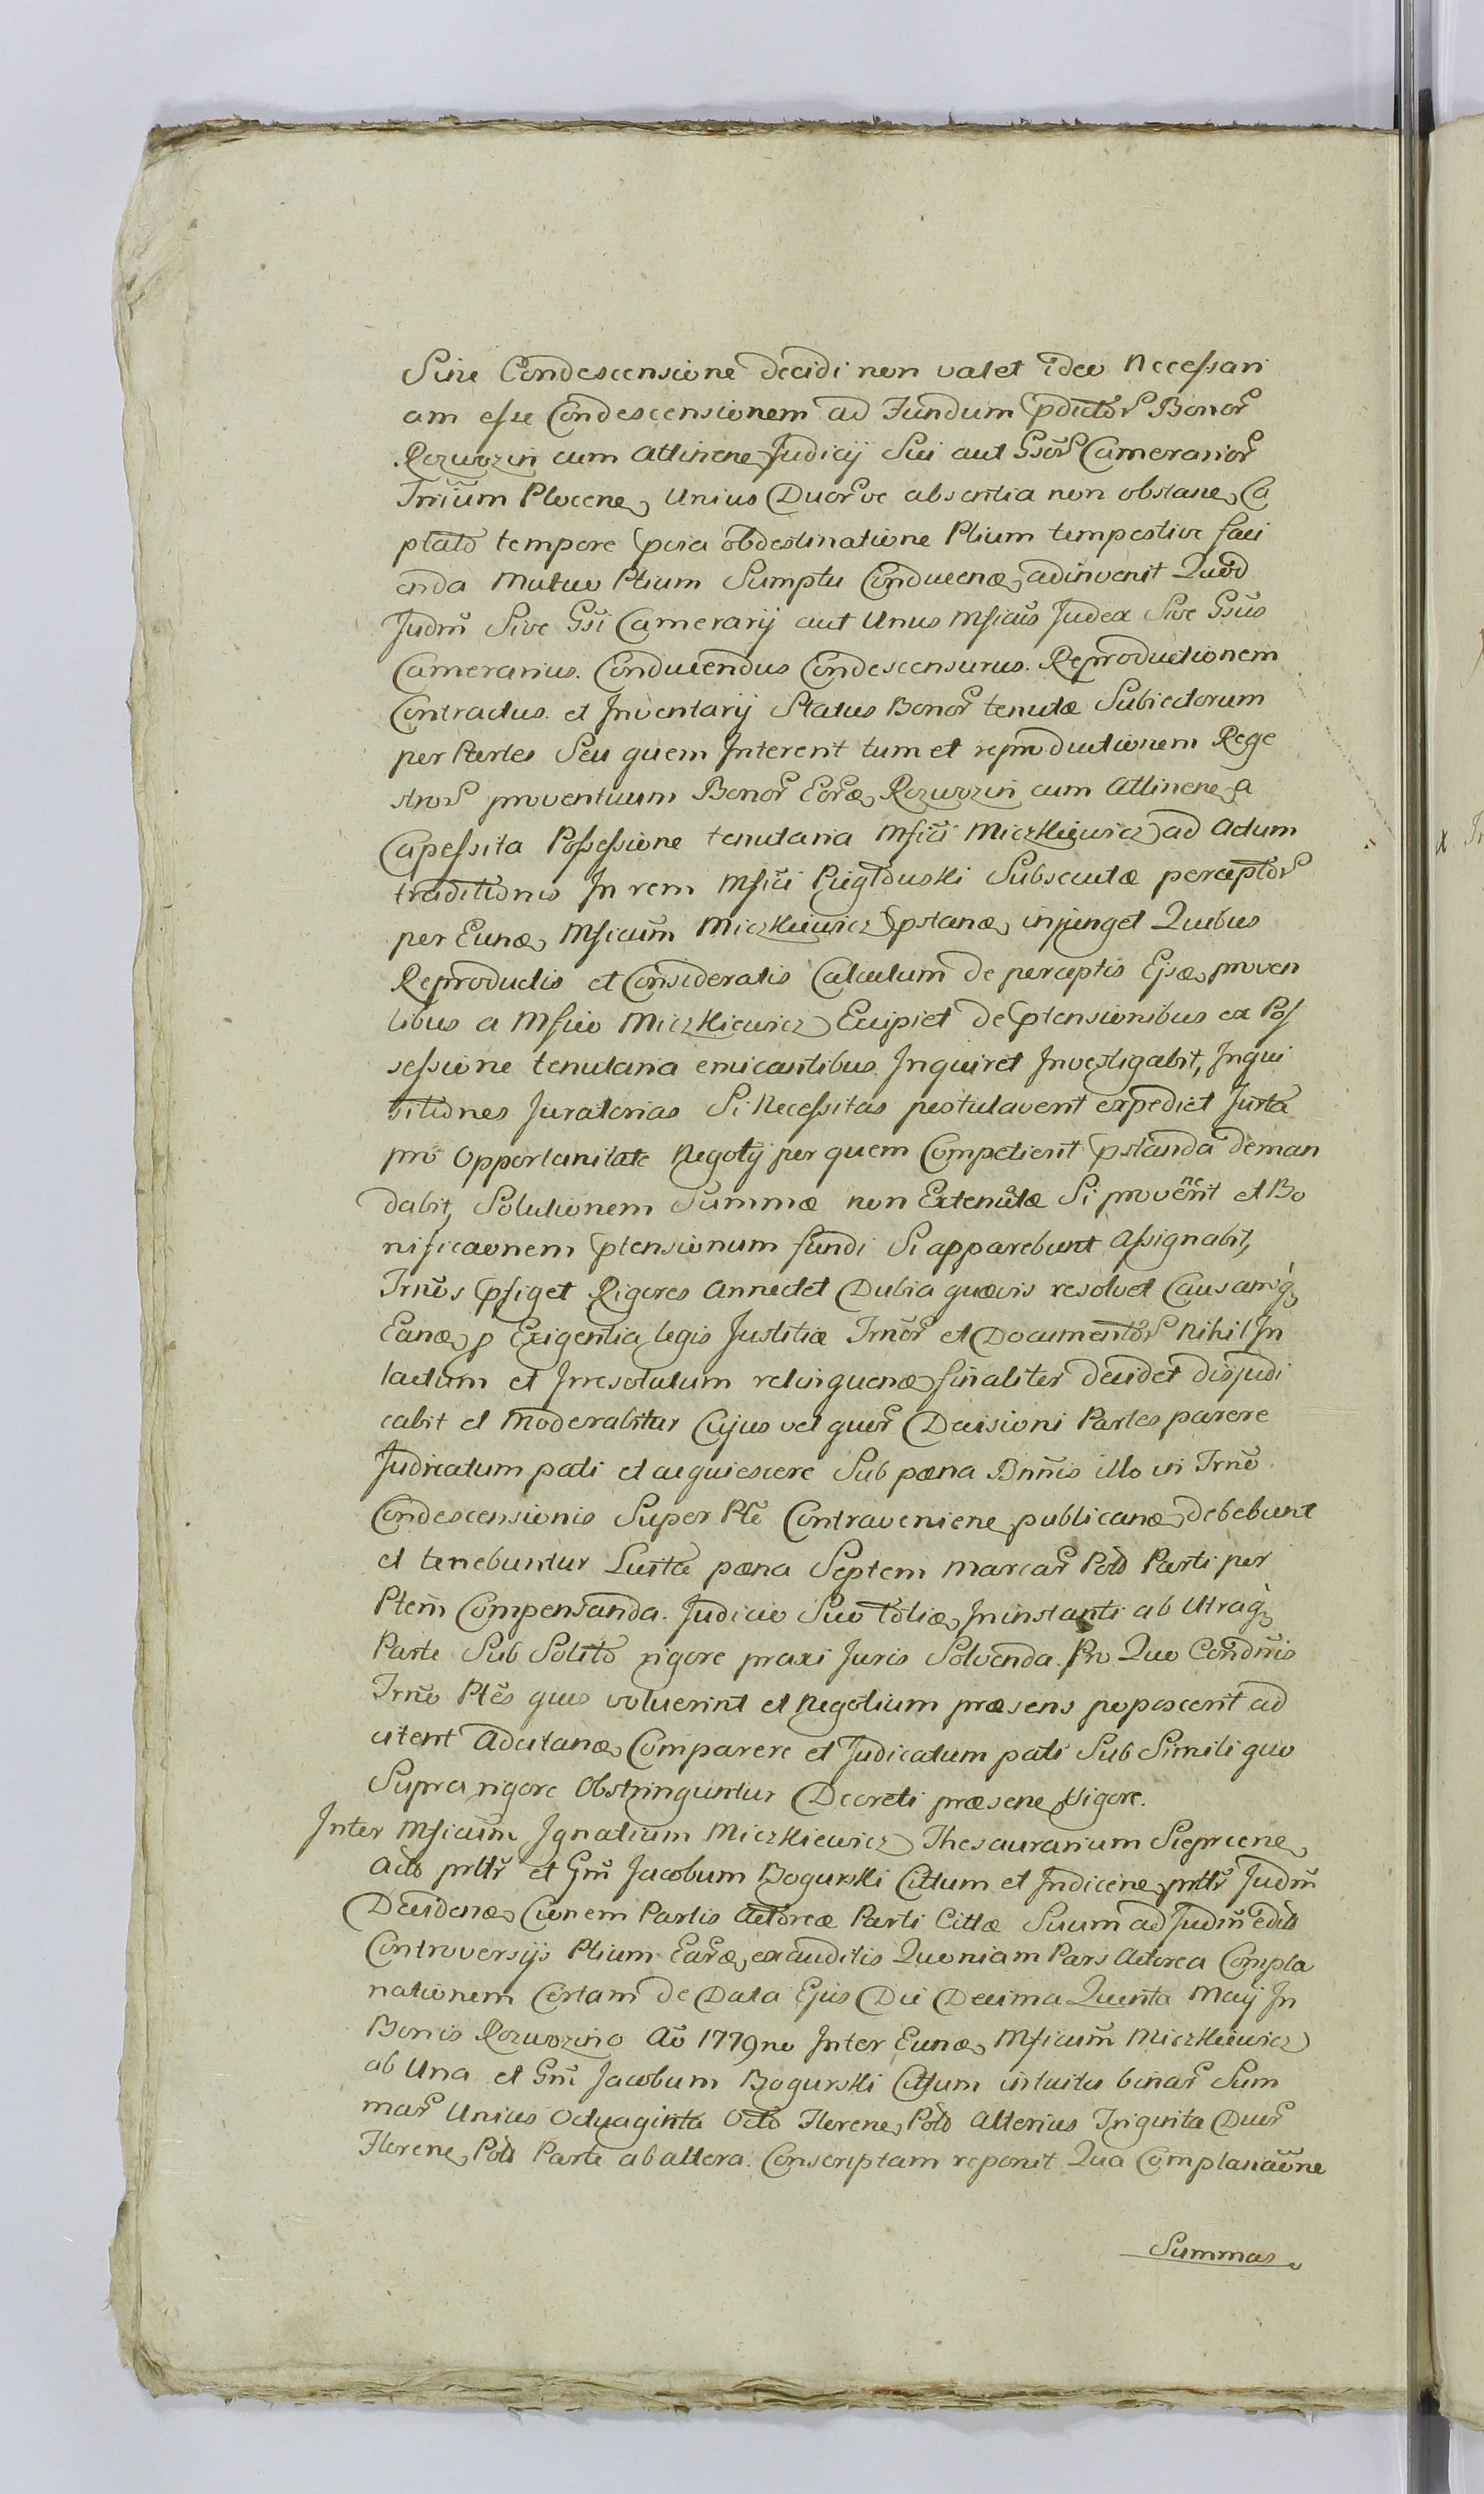 Sine Condescensione decidi non valet ideo Necessari
am esse Condescensionem ad Fundum pdictor Bonor
Rozwozin cum attinene Judicij Sui aut Gsor Camerarior
Trrium Plocene, Unius Duorve absentia non obstane, Ca
ptato tempore, pvia obdestinatione Ptium tempestive faci
enda Mutuo Ptium Sumptu Conducenæ, adinvenit Quod
Judm̃ Sive Gsi Camerarij aut Unus Mficus Judex Sive Gsus
Camerarius. Conducendus Condescensurus. Reproductionem
Contractus. et Inventarij Status Bonor tenutæ Subiectorum
per Partes Seu quem Intererit tum et reproductionem Rege
stror proventuum Bonor Eoræ, Rozwozin cum Attinene, a
Capessita Possessione tenutaria Mfici Miczkiewicz ad Actum
traditionis In rem Mfici Pieglowski Subsecutæ perceptor
per Eunæ, Mficum Miczkiewicz pstanæ, injunget Quibus
Reproductis et Consideratis Calculum de perceptis Ejsæ, proven
tibus a Mfico Miczkiewicz Excipiet de ptensionibus ex Pos
sessione tenutaria emicantibus. Inquiret Investigabit, Inqui
sitiones Juratorias Si Necessitas postulaverit expediet Jurta
pro Opportunitate Negotij per quem Competierit pstanda deman
dabit, Solutionem Summæ non Extenutæ Si provenerit et Bo
nificaonem ptensionum fundi Si apparebunt Assignabit,
Trños pfiget Rigores Annectet Dubia quævis resolvet Causamq,
Eanæ, p Exigentia legis Justitiæ Trñor et Documentor Nihil In
tactum et Irresolutum relinquenæ, finaliter decidet disjudi
cabit et Moderabitur Cujus vel quor Decisioni Partes parere
Judicatum pati et acquiescere Sub pæna Bnñis illo in Trño
Condescensionis Super Pte Contraveniene, publicanæ, debebunt
et tenebuntur Luita pæna Septem Marcar Poło Parti per
Ptem Compensanda. Judicio Suo toliæ, In instanti ab Utraq,
Parte Sub Solito rigore praxi Juris Solvenda. Pro Quo Condnis
Trño Ptes quos voluerint et Negotium præsens poposcerit ad
citent Adcitanæ, Comparere et Judicatum pati Sub Simili quo
Supra rigore Obstringuntur Decreti præsene, Vigore.
Inter Mficum Ignatium Miczkiewicz Thesaurarium Sieprcene,
Acto prltr et Gm̃ Jacobum Bogurski Cittum et Indicene, prltr Judm̃
Decidenæ, Cionem Partis Actoreæ Parti Cittæ Suum ad Judm̃ edito
Controversijs Ptium Earæ, exauditis Quoniam Pars Actorea Compla
nationem Certam de Data Ejus Die Decima Quinta Maij In
Bonis Rozwozino Ao 1779no Inter Eunæ, Mficum Miczkiewicz
ab Una et Gm̃ Jacobum Bogurski Cittum intuitu binar Sum
mar Unius Octuaginta Octo Florene, Poło Alterius Triginta Duor
Florene, Poło Parte ab altera. Conscriptam reponit Qua Complanaone
Summas